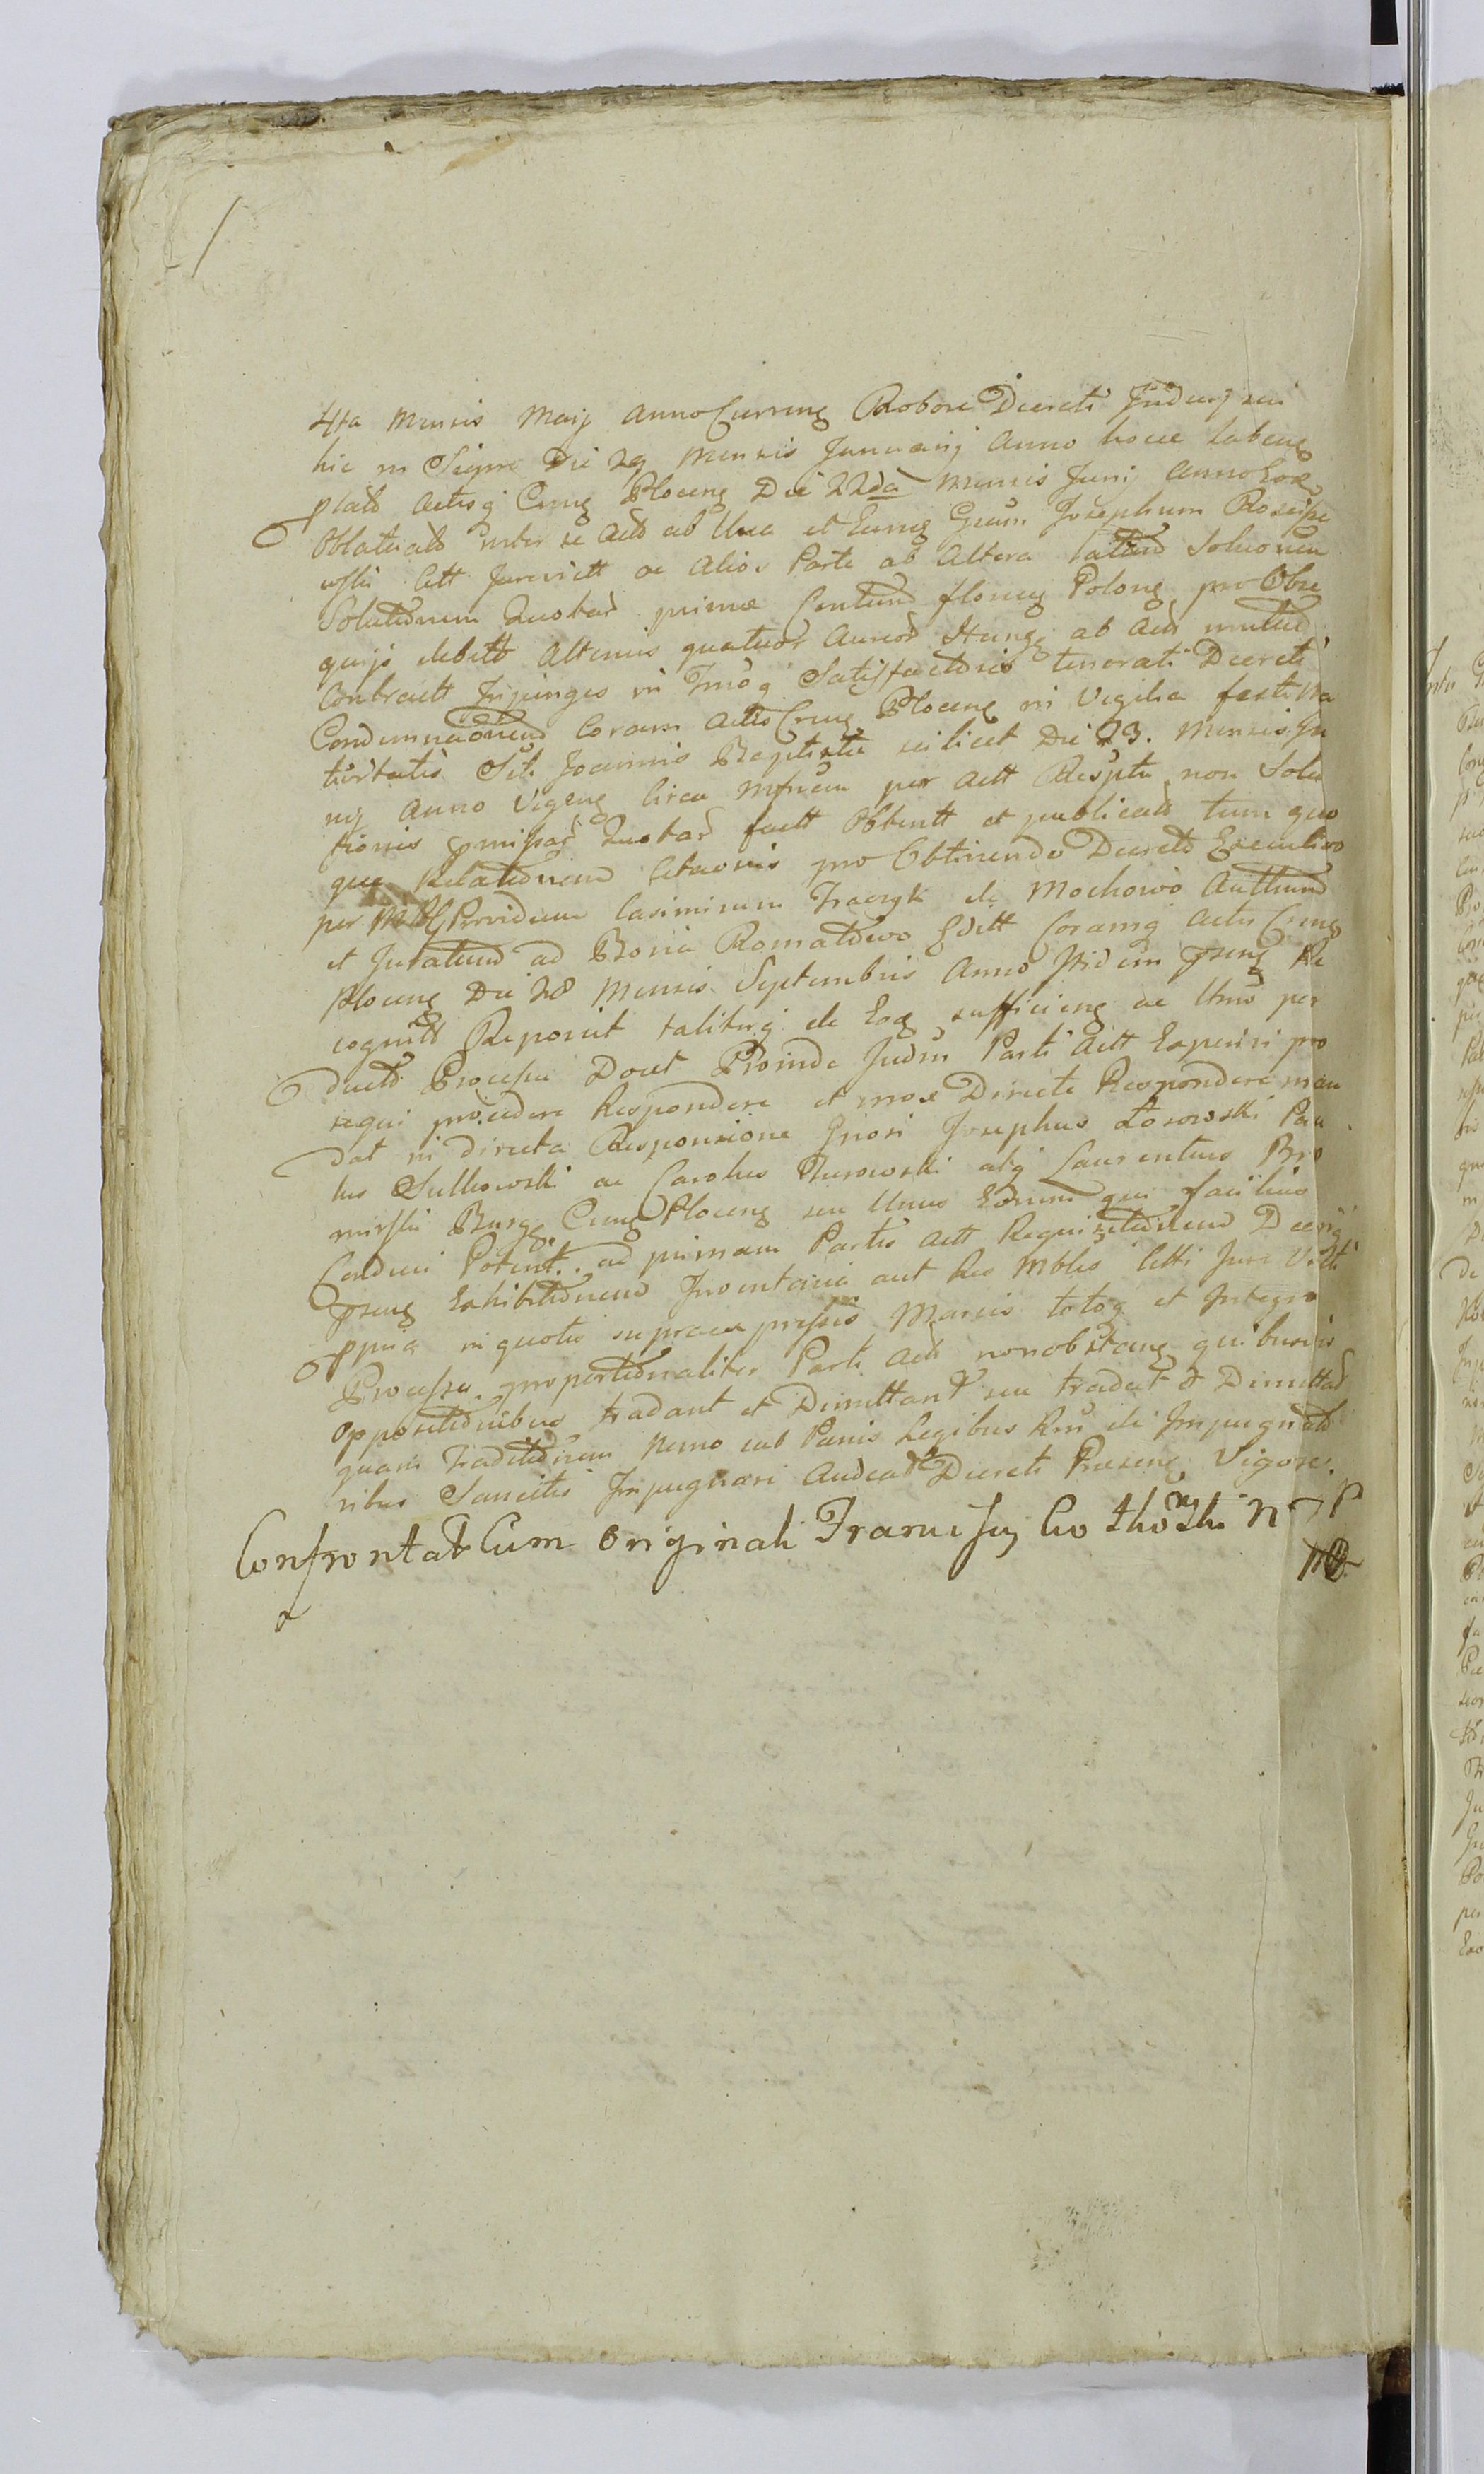 4ta Mensis Maij Anno Curreng Robore Decreti Judicij sui
hic in Sierpc Die 29 Mensis Januarij Anno hocce labeng
plato Actisq Crng Ploceng Die 22da Mensis Junij Anno Eod
Oblatuato inter se Act ab Una et Eumq Gsum Josephum Rościsze
wski Citt Jurevictt ac Alios Parte ab Altera latum Solvonem
Solutionem Quotar primæ Centum floreng Polong pro Obse
quijs debitt Alterius quatuor Aureor Hung ab Act mutuo
Contractt Injunges in Immoq Satisfactionis tenorati Decreti
Condemnationem Coram Actis Crng Ploceng in Vigilia festi Na
tivitatis Sti Joannis Baptistæ scilicet Die 23. Mensis Ju
nij Anno Vigeng circa Mfnem per Actt Respctu non Solu
tionis pmissar Quotar factt Obtentt et publicatt tum quo
que Relationem Citaonis pro Obtinendo Decreto Executivo
per Providum Casimirum Traczyk de Mochowo Authum
et Juratum ad Bona Romatowo Editt Coramq Actis Crng
Ploceng Die 28 Mensis Septembris Anno Itidem pseng Re
cognitt Reposuit taliterq de Eoq sufficieng ac Ultmo per
ducto Processu Docet Proinde Judm Parti Actt Experiri pro
sequi procedere Respondere et mox Directe Respondere man
dat in directa Responsione Gnosi Josephus Łosowski Pau
lus Sulkowski ac Carolus Rurowski atq Laurentius Bro
mirski Burg Crng Ploceng seu Unus Eorum qui facilius
Conduci Potent.. ad primam Partis Actt Requisitionem Decriq
pseng Exhibitionem Inventaria aut Res Mbles Citti Jure Victi
ppria in quotis supraexpressis Marcis totoq et Integro
Processu proportionaliter Parti Act nonobstang quibusvis
Oppositionibus tradant et Dimittant seu tradat et Dimittat
quam Traditionem Nemo sub Pœnis Legibus Rni de Impugnato
ribus Sancitis Impugnari Audeat Decreti Præseng Vigore.
Confrontat Cum Originali Francisq